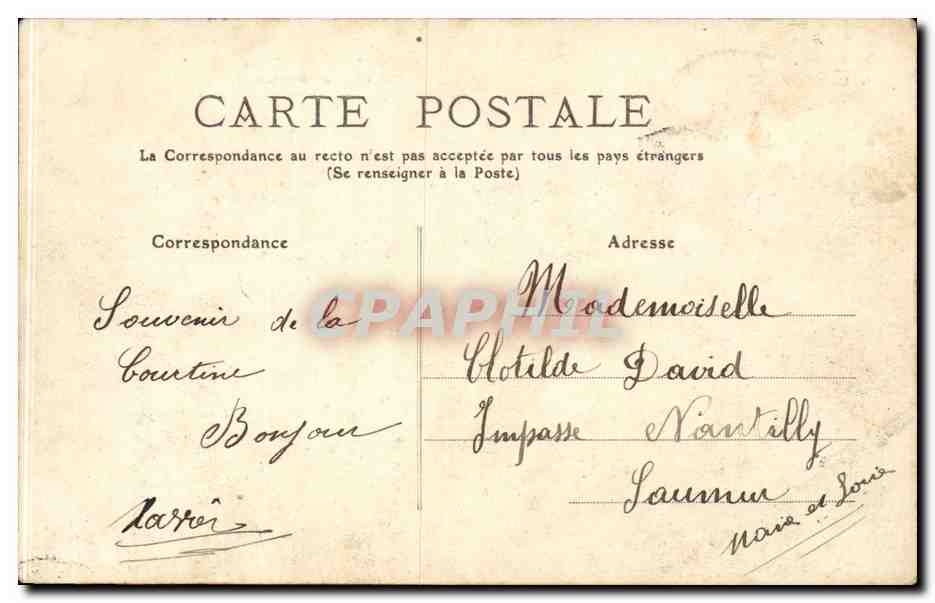 CARTE POSTALE
La Correspondance au recto n'est pas acceptée par tous les pays étrangers
(Se renseigner à la Poste)
Correspondance
Souvenir de la
Courtine
Bonjour
Adresse
Mademoiselle
Clotilde David
Impasse Nantilly
Saumur
Maine et Loire
CPAPHIL